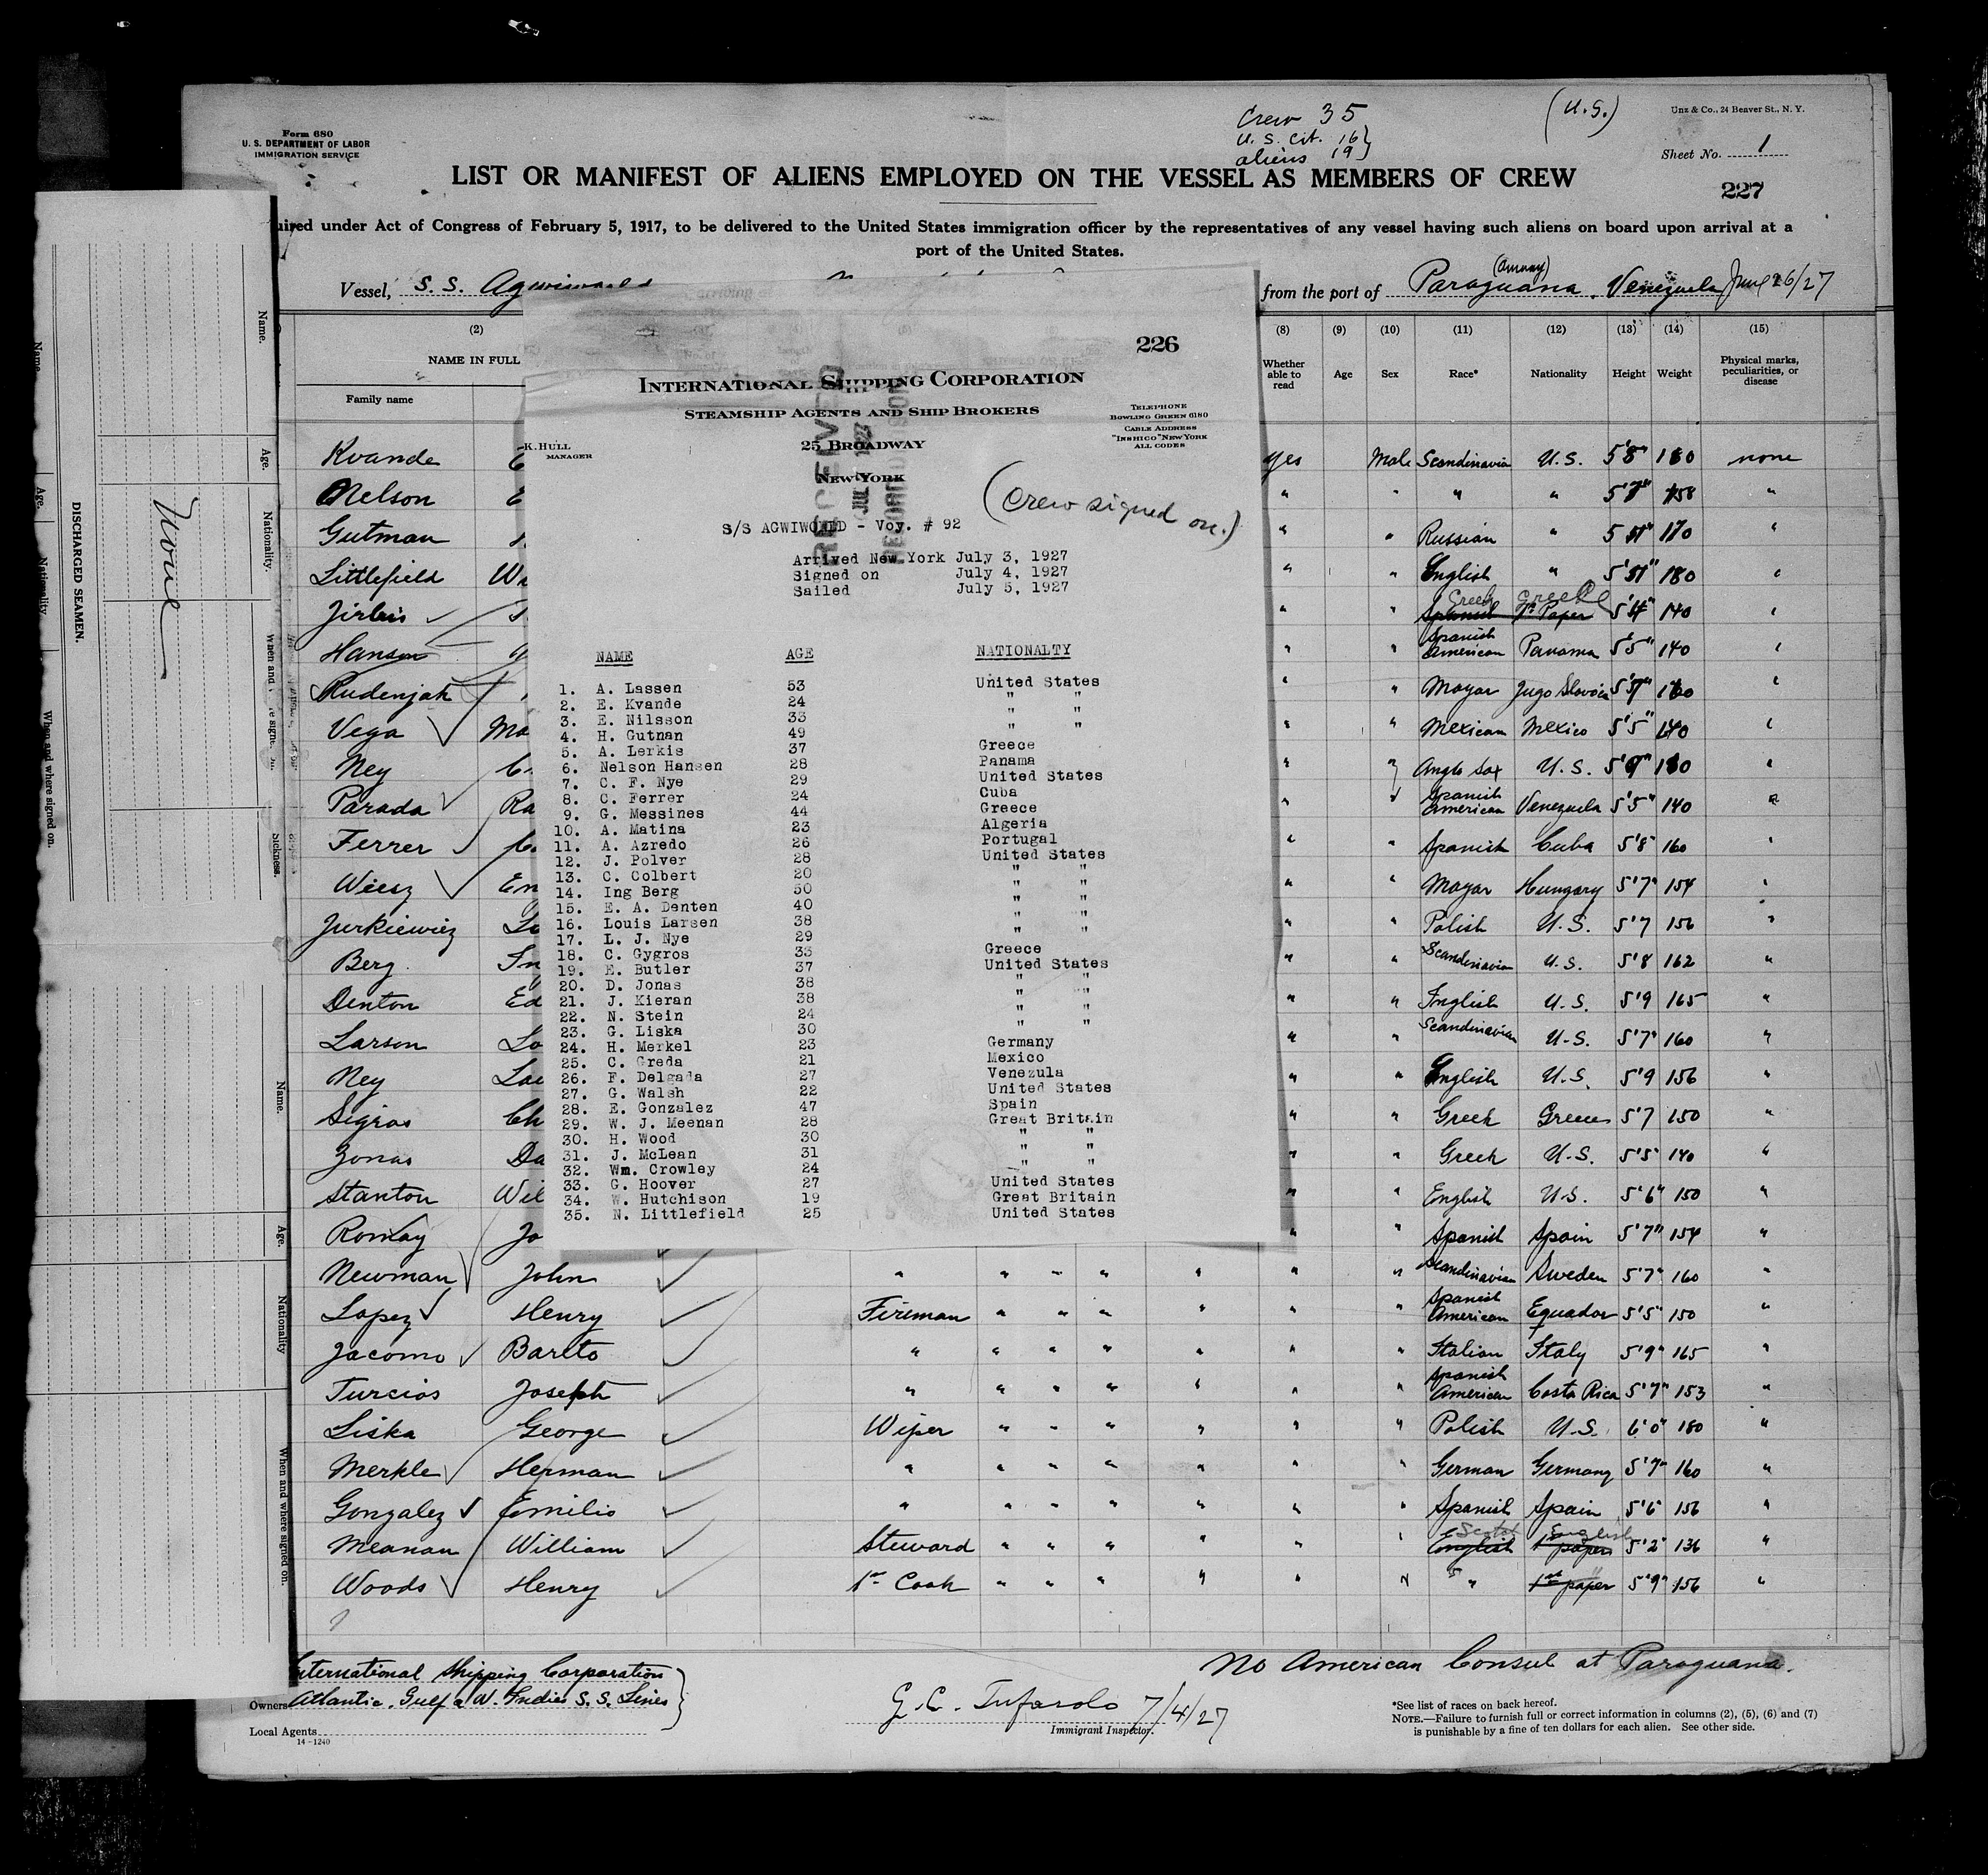 Form 680
U. S. DEPARTMENT OF LABOR
IMMIGRATION SERVICE
Crew 35
U. S. Cit. 16
aliens 19
(U.S.)
Unz & Co., 24 Beaver St., N. Y.
Sheet No. 1
LIST OR MANIFEST OF ALIENS EMPLOYED ON THE VESSEL AS MEMBERS OF CREW
227
uired under Act of Congress of February 5, 1917, to be delivered to the United States immigration officer by the representatives of any vessel having such aliens on board upon arrival at a
port of the United States.
Vessel, S. S. Agwiworld
from the port of Paraguana, Venezuela June 26/27
(2) NAME IN FULL
Family name
(8) Whether able to read
(9) Age
(10) Sex
(11) Race*
(12) Nationality
(13) Height
(14) Weight
(15) Physical marks, peculiarities, or disease
226
INTERNATIONAL SHIPPING CORPORATION
STEAMSHIP AGENTS AND SHIP BROKERS
TELEPHONE
BOWLING GREEN 6180
CABLE ADDRESS
"INSHICO" NEW YORK
ALL CODES
K. HULL
MANAGER
25 BROADWAY
NEW YORK
RECEIVED
JUL 1927
(Crew signed on.)
S/S AGWIWORLD - Voy. # 92
Arrived New York July 3, 1927
Signed on July 4, 1927
Sailed July 5, 1927
NAME AGE NATIONALTY
1. A. Lassen 53 United States
2. E. Kvande 24 " "
3. E. Nilsson 33 " "
4. H. Gutnan 49 " "
5. A. Lerkis 37 Greece
6. Nelson Hansen 28 Panama
7. C. F. Nye 29 United States
8. C. Ferrer 24 Cuba
9. G. Messines 44 Greece
10. A. Matina 23 Algeria
11. A. Azredo 26 Portugal
12. J. Polver 28 United States
13. C. Colbert 20 " "
14. Ing Berg 50 " "
15. E. A. Denten 40 " "
16. Louis Larsen 38 " "
17. L. J. Nye 29 " "
18. C. Gygros 33 Greece
19. E. Butler 37 United States
20. D. Jonas 38 " "
21. J. Kieran 38 " "
22. N. Stein 24 " "
23. G. Liska 30 " "
24. H. Merkel 23 Germany
25. C. Greda 21 Mexico
26. F. Delgada 27 Venezula
27. G. Walsh 22 United States
28. E. Gonzalez 47 Spain
29. W. J. Meenan 28 Great Britain
30. H. Wood 30 " "
31. J. McLean 31 " "
32. Wm. Crowley 24 " "
33. G. Hoover 27 United States
34. W. Hutchison 19 Great Britain
35. N. Littlefield 25 United States
Kvande yes Male Scandinavia U.S. 5'8" 180 none
Nelson " " " " 5'7" 158 "
Gutman " " Russian " 170 "
Littlefield " " English " 180 "
" " Greek Greece 5'4" 140 "
Hanson " " Spanish American Panama 5'5" 140 "
Rudenjak " " Magar Jugo Slovia
Vega " " Mexican Mexico 5'5" 140 "
Ney " " Anglo Sax U.S. 5'9" "
Parada Ra " " Spanish American Venezuela 5'5" 140 "
Ferrer " " Spanish Cuba 5'8 160 "
Wiesz " " Magar Hungary 5'7" 154 "
Jurkiewiez " " Polish U.S. 5'7 156 "
Berg " " Scandinavian U.S. 5'8 162 "
Denton Ed " " English U.S. 5'9 165 "
Larson Lo " " Scandinavian U.S. 5'7" 160 "
Ney " " English U.S. 5'9 156 "
Sigros Ch " " Greek Greece 5'7 150 "
Zonas Da " " Greek U.S. 5'5" 140 "
Stanton Wil " " English U.S. 5'6" 150 "
Romay Jo " " Spanish Spain 5'7" 154 "
Newman John " " " " " " " Scandinavian Sweden 5'7" 160 "
Lopez Henry Fireman " " " " " " Spanish American Equador 5'5" 150 "
Jacomo Barito " " " " " " " Italian Italy 5'9" 165 "
Turcios Joseph " " " " " " " Spanish American Costa Rica 5'7" 153 "
Liska George Wiper " " " " " " Polish U.S. 6'0" 180 "
Merkle Herman " " " " " " " German Germany 5'7" 160 "
Gonzalez Emilio " " " " " " " Spanish Spain 5'6" 156 "
Meanan William Steward " " " " " " English 1st paper English 5'2" 136 "
Woods Henry 1st Cook " " " " " " " 1st paper 5'9" 156 "
International Shipping Corporation
Owners Atlantic, Gulf & W. Indies S. S. Lines
Local Agents
14-1240
No American Consul at Paraguana.
G. C. Tufarolo 7/4/27
Immigrant Inspector.
*See list of races on back hereof.
NOTE.—Failure to furnish full or correct information in columns (2), (5), (6) and (7)
is punishable by a fine of ten dollars for each alien. See other side.
DISCHARGED SEAMEN.
None
Name.
Age.
Nationality.
Sickness.
Name.
Age.
Nationality
When and where signed on.
Name
Age.
Nationality
When and where signed on.